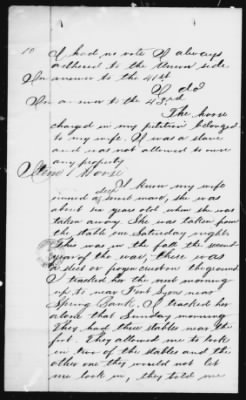 10 I had no vote I always
adhered to the Union side
In answer to the 41st
I did
In answer to the 43rd
The horse
charged in my petition belonged
to my wife. I was a slave
and was not allowed to own
any property
Item 1 Horse.
I knew my wife
owned a sorel mare, she was
about six year old when she was
taken away. She was taken from
the stable one Saturday night
this was in the fall the second
year of the war, there was
a sleet or frozen crust on the ground
I tracked her the next morning
up to near Fort Lyon near
Spring Bank. I tracked her
alone that Sunday morning
They had their stables near the
fort. They allowed me to look
in two of the stables and the
other one they would not let
me look in, they told me